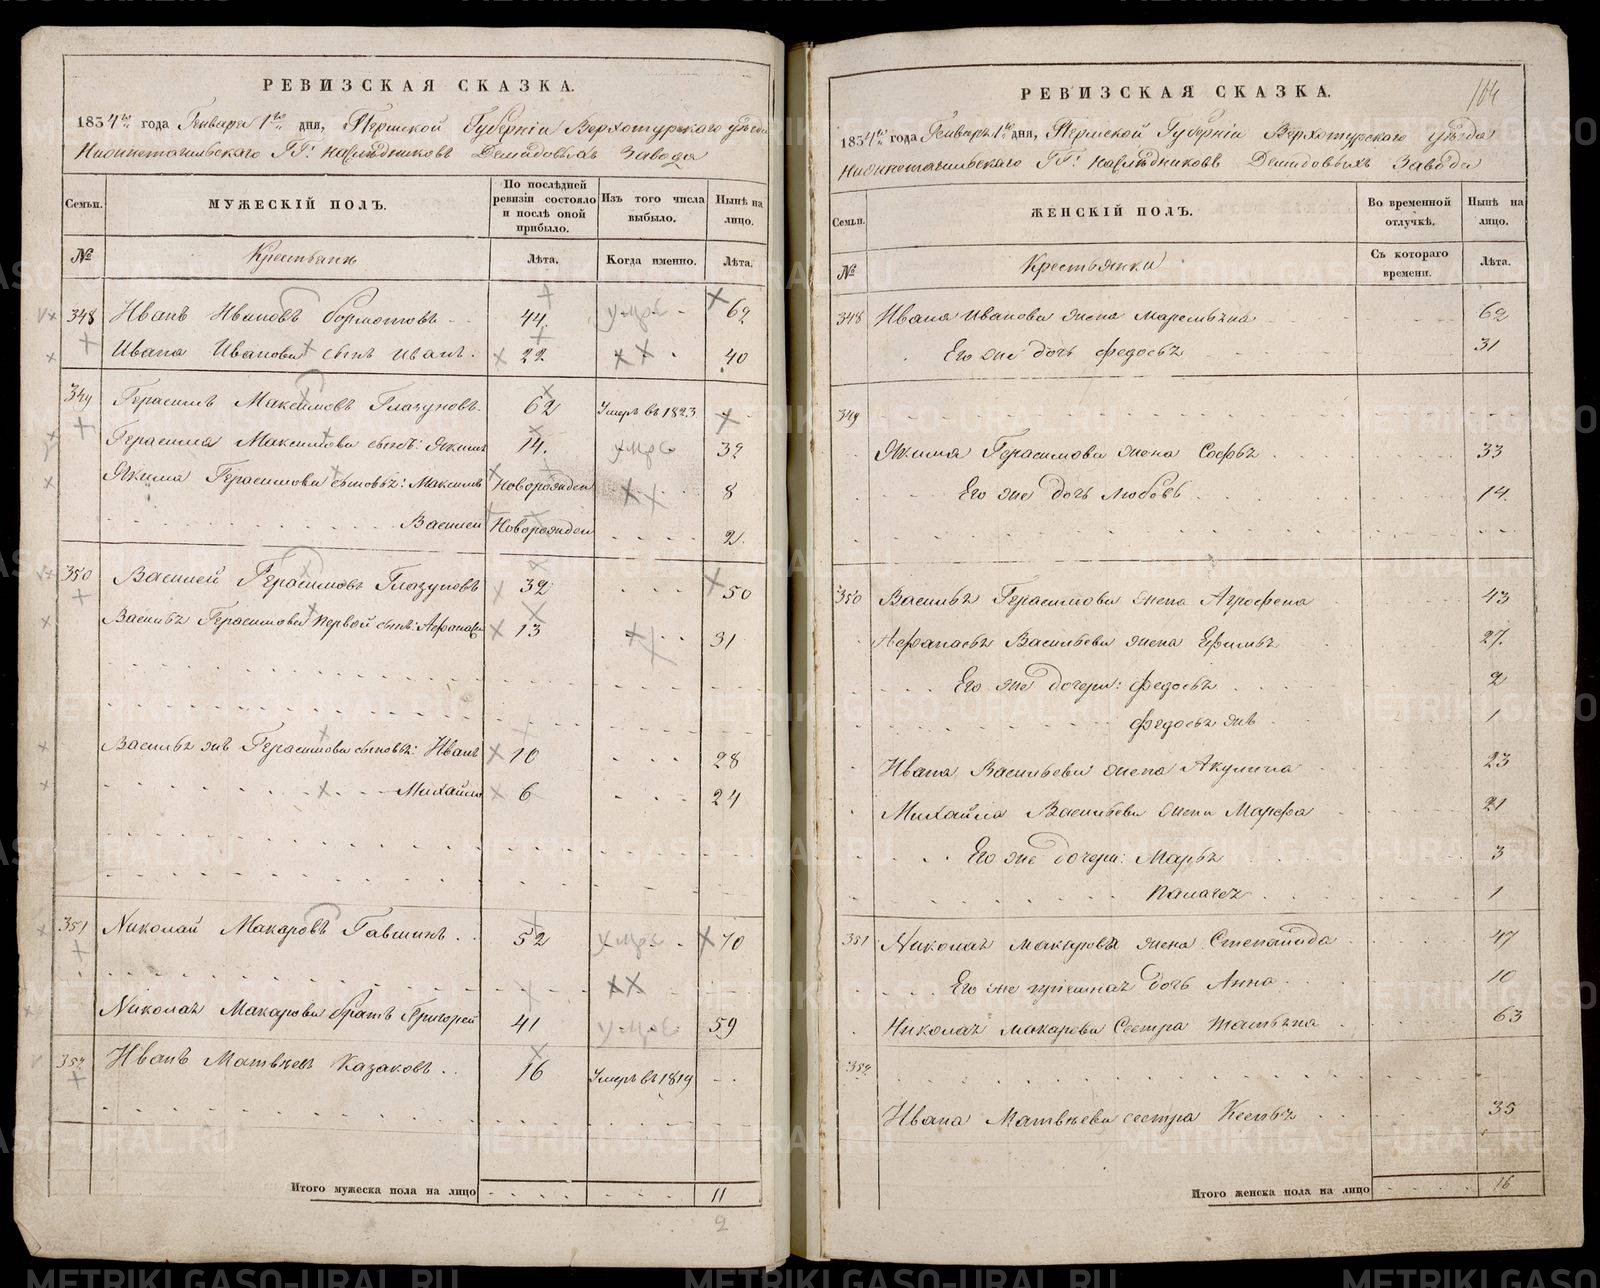 РЕВИЗСКАЯ СКАЗКА.
1834го года Генваря 1го дня, Пермской Губерніи Верхотурскаго уѣзда
Нижнетагильскаго ГГ. наслѣдниковъ Демидовыхъ Завода
Семьи.
МУЖЕСКІЙ ПОЛЪ.
По послѣдней ревизіи состояло и послѣ оной прибыло.
Изъ того числа выбыло.
Нынѣ на лицо.
№
Крестьянъ
Лѣта.
Когда именно.
Лѣта.
348 Иванъ Ивановъ 44 69
Ивана Иванова сынъ Иванъ. 22 40
349 Герасимъ Максимовъ Глазуновъ. 62 Умеръ въ 1823
Герасима Максимова сынъ: Якимъ 14. 32
Якима Герасимова сыновья: Максимъ Новорожден 8
Василей Новорожден 2.
350 Василей Герасимовъ Глазуновъ 32 50
Василья Герасимова первой сынъ: Афанасей 13 31
Василья жъ Герасимова сыновья: Иванъ 10 28
Михайло 6 24
351 Николай Макаровъ Гавшинъ. 52 70
Николая Макарова братъ Григорей 41 59
352 Иванъ Матвѣевъ Казаковъ. 16 Умеръ въ 1819
Итого мужеска пола на лицо 11
2
104
РЕВИЗСКАЯ СКАЗКА.
1834го года Генваря 1го дня, Пермской Губерніи Верхотурскаго уѣзда
Нижнетагильскаго ГГ. наслѣдниковъ Демидовыхъ Завода
Семьи.
ЖЕНСКІЙ ПОЛЪ.
Во временной отлучкѣ.
Нынѣ на лицо.
№
Крестьянки
Съ котораго времени.
Лѣта.
348 Ивана Иванова жена Маремьяна 62
Его же дочь Федосья 31
349
Якима Герасимова жена Софья 33
Его же дочь Любовь 14.
350 Василья Герасимова жена Агрофена 43
Афанасья Васильева жена Ефимья 27.
Его же дочери: Федосья 2
Федосья жъ 1
Ивана Васильева жена Акулина 23
Михайла Васильева жена Марфа 21
Его же дочери: Марья 3
Палагея 1
351 Николая Макарова жена Степанида 47
Его же дочь Анна 10
Николая Макарова сестра Татьяна 63
352
Ивана Матвѣева сестра Ксенья 35
Итого женска пола на лицо 16
METRIKI.GASO-URAL.RU